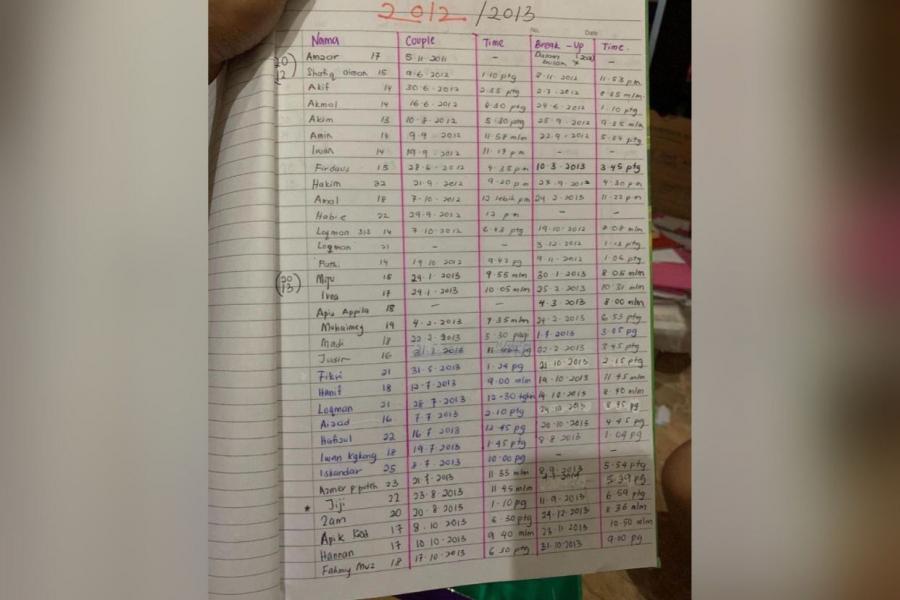 2012 /2013
No. Date
Nama Couple Time Break-Up Time.
20 Amzar 17 5.11.2011 – –
12 Shafiq aiman 15 9.6.2012 1.10 ptg 8.11.2012 11.53 pm
Akif 14 30.6.2012 2.55 ptg 2.7.2012
Akmal 14 16.6.2012 24.6.2012 1.10 ptg
Akim 13 10.8.2012 5.30 ptg 25.9.2012 9.55 mlm
Amin 14 9.9.2012 11.58 mlm 22.9.2012 5.54 ptg
Iwan 14 19.9.2012 11.17 pm – –
Firdaus 15 28.6.2012 4.35 pm 10.3.2013 3.45 ptg
Hakim 22 21.9.2012 9.20 pm 4.30 pm
Amal 18 7.10.2012 12 lebih pm 24.2.2013 11.22 pm
Habie 22 29.9.2012 12 pm – –
Loqman 14 7.10.2012 6.43 ptg 19.10.2012
Loqman 21 – – 3.12.2012 1.13 ptg
14 19.10.2012 9.42 pg 9.11.2012 1.06 ptg
20 15 24.1.2013 9.55 mlm 30.1.2013 8.05 mlm
13 17 29.1.2013 10.05 mlm 25.2.2013 10.31 mlm
Apiz 18 – – 4.3.2013 8.00 mlm
Muhaimey 19 4.2.2013 7.35 mlm 24.2.2013 6.53 ptg
Madi 18 22.2.2013 5.30 1.7.2013 3.05 pg
16 3.45 ptg
Fikri 21 31.5.2013 1.24 pg 21.10.2013 2.15 ptg
Hanif 18 12.7.2013 9.00 mlm 19.10.2013 11.45 mlm
Loqman 21 28.7.2013 12.30 14.18.2013 8.40 mlm
Aizad 16 7.7.2013 2.10 ptg 8.35 pg
Hafizul 22 16.7.2013 12.45 pg 20.10.2013 4.45 pg
Iwan 18 19.7.2013 1.45 ptg 8.8.2013 1.04 pg
Iskandar 25 8.7.2013 10.00 pg – –
23 11.33 mlm 8.9.2013 5.54 ptg
* Jiji 22 23.8.2013 11.45 mlm 5.39 pg
Zam 20 20.8.2013 1.10 pg 11.9.2013 6.59 ptg
Apik 17 8.10.2013 6.30 ptg 24.12.2013 8.36 mlm
Hannan 17 10.10.2013 9.40 mlm 23.11.2013 10.50 mlm
Fahmy Muz 18 17.10.2013 6.30 ptg 31.10.2013 9.00 pg